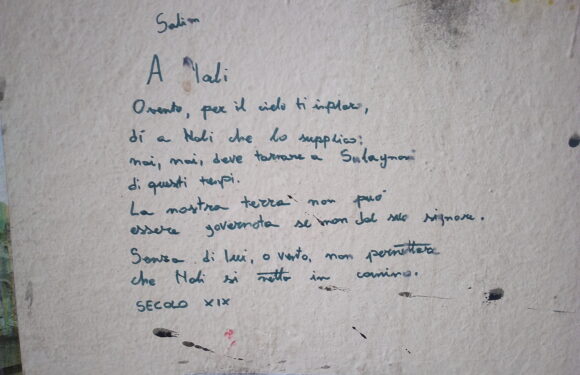 Salim
A Mali
O vento, per il cielo ti inploro,
dí a Mali che lo supplico:
mai, mai, deve tornare a
di questi tenpi.
La nostra terra non può
essere governata se non dal suo signore.
Senza di lui, o vento, non permettere
che Mali si metta in camino.
SECOLO XIX